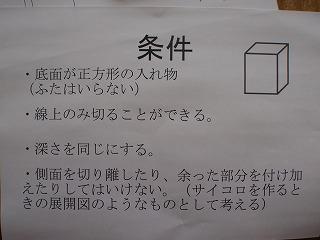 条件
・底面が正方形の入れ物
（ふたはいらない）
・線上のみ切ることができる。
・深さを同じにする。
・側面を切り離したり、余った部分を付け加
えたりしてはいけない。（サイコロを作ると
きの展開図のようなものとして考える）